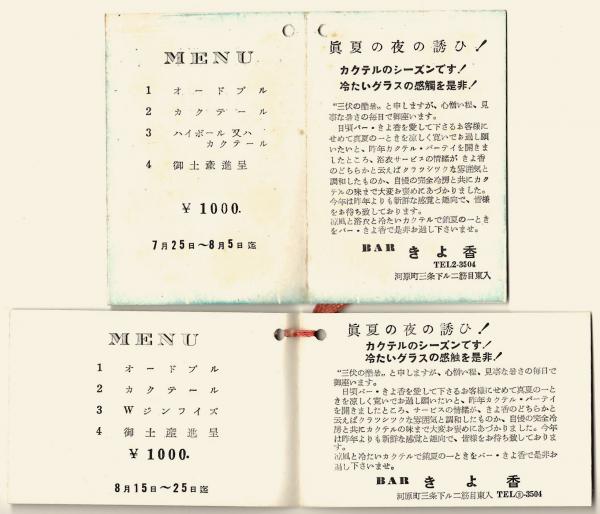 MENU
1 オードブル
2 カクテール
3 ハイボール又ハ
カクテール
4 御土産進呈
¥ 1000.
7月25日〜8月5日迄
眞夏の夜の誘ひ!
カクテルのシーズンです!
冷たいグラスの感觸を是非!
“三伏の酷暑„と申しますが、心憎い程、見
事な暑さの毎日で御座います。
日頃バー・きよ香を愛して下さるお客様に
せめて真夏の一ときを涼しく寛いでお過し願
いたいと、昨年カクテル・パーテイを開きま
したところ、浴衣サービスの情緒が きよ香
のどちらかと云えばクラッシックな雰囲気と
調和したものか、自慢の完全冷房と共にカク
テルの味まで大変お褒めにあづかりました。
今年は昨年よりも新鮮な感覚と趣向で、皆様
をお待ち致しております。
涼風と浴衣と冷たいカクテルで鎖夏の一とき
をバー・きよ香で是非お過し下さいませ。
BAR きよ香
TEL2-3504
河原町三条下ル二筋目東入
MENU
1 オードブル
2 カクテール
3 Wジンフイズ
4 御土産進呈
¥ 1000.
8月15日〜25日迄
眞夏の夜の誘ひ!
カクテルのシーズンです!
冷たいグラスの感触を是非!
“三伏の酷暑„と申しますが、心憎い程、見事な暑さの毎日で
御座います。
日頃バー・きよ香を愛して下さるお客様にせめて真夏の一と
きを涼しく寛いでお過し願いたいと、昨年カクテル・パーテイ
を開きましたところ、サービスの情緒が、きよ香のどちらかと
云えばクラシックな雰囲気と調和したものか、自慢の完全冷
房と共にカクテルの味まで大変お褒めにあづかりました。今年
は昨年よりも新鮮な感覚と趣向で、皆様をお待ち致しておりま
す。
涼風と冷たいカクテルで鎖夏の一ときをバー・きよ香で是非お
過し下さいませ。
BAR きよ香
河原町三条下ル二筋目東入 TEL②-3504